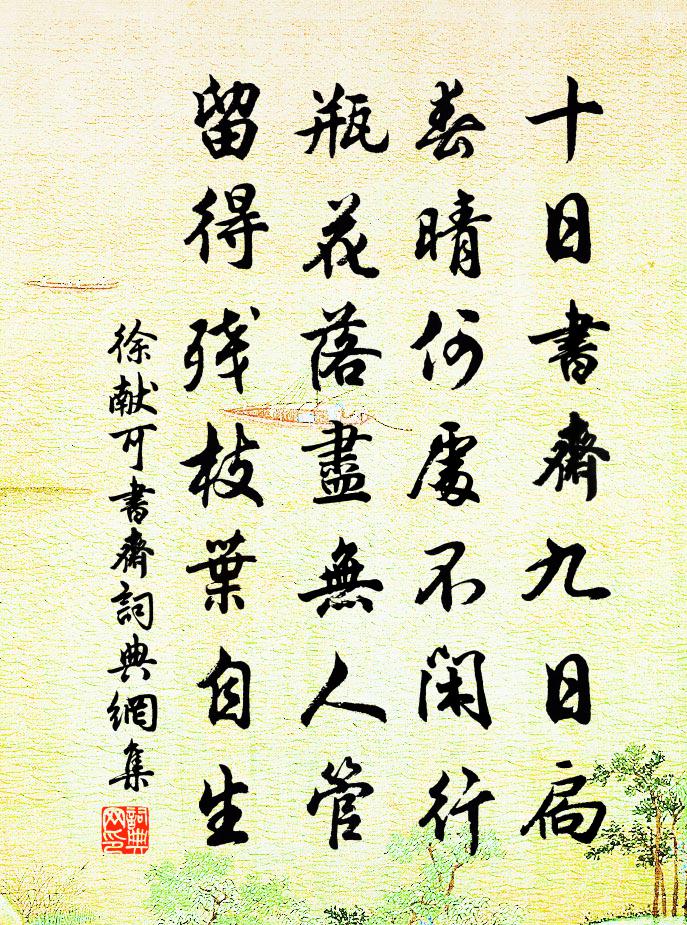 十日書齋九日扃
春晴何處不閑行
瓶花落盡無人管
留得残枝葉自生
徐献可書齋詞典網集
詞典网印